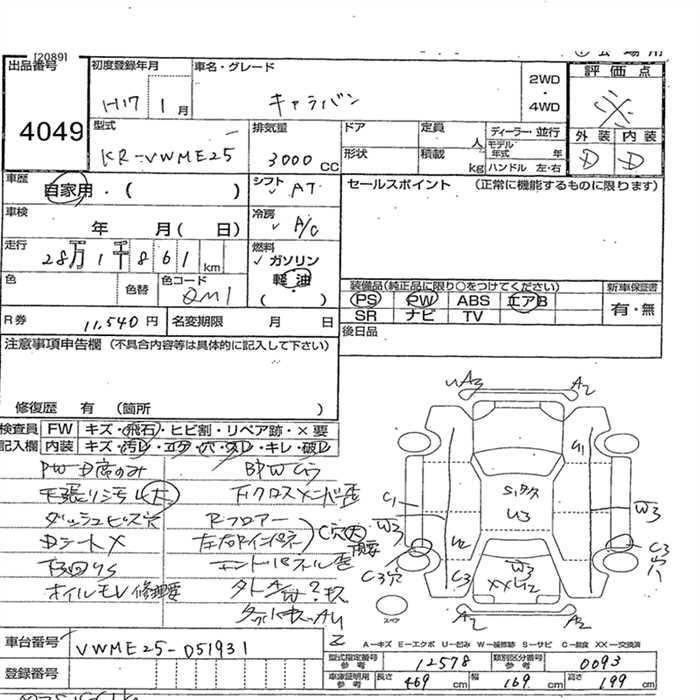 [20891
出品番号 初度登録年月 車名・グレード 2WD・4WD 評価点
4049 H17 1月 キャラバン
型式 排気量 ドア 定員 人 ディーラー・並行 外装 内装
KR-VWME25 3000CC 形状 積載 kg モデル年式 年 ハンドル 左・右 D D
車歴 自家用・( ) シフト AT セールスポイント (正常に機能するものに限ります)
車検 年 月( 日) 冷房 A/C
走行 28万1千861km 燃料 ガソリン
軽油
( )
色 色替 色コード QM1
装備品(純正品に限り○をつけてください) 新車保証書
PS PW ABS エアB 有・無
SR ナビ TV
R券 11,540円 名変期限 月 日 後日品
注意事項申告欄 (不具合内容等は具体的に記入して下さい)
修復歴 有 (箇所 )
検査員 FW キズ・飛石・ヒビ割・リペア跡・×要
記入欄 内装 キズ・汚レ・コゲ・穴・スレ・キレ・破レ
PW D席のみ
天張り汚レ大
ダッシュビス穴 Rフロアー
Dシート× 左右Rインパネ C穴大
オイルモレ修理要
A2
A2
G1
C1
S1タス
U3
W3
W3
U2
C3穴
C3
W3
XXU2
C3
穴
A2
A2
スペア
A-キズ E-エクボ U-凹み W-補修跡 S-サビ C-腐食 XX-交換済
車台番号 VWME25-051931
型式指定番号 参考 12578 類別区分番号 参考 0093
登録番号
車庫証明用 参考 長さ 469cm 幅 169cm 高さ 199cm